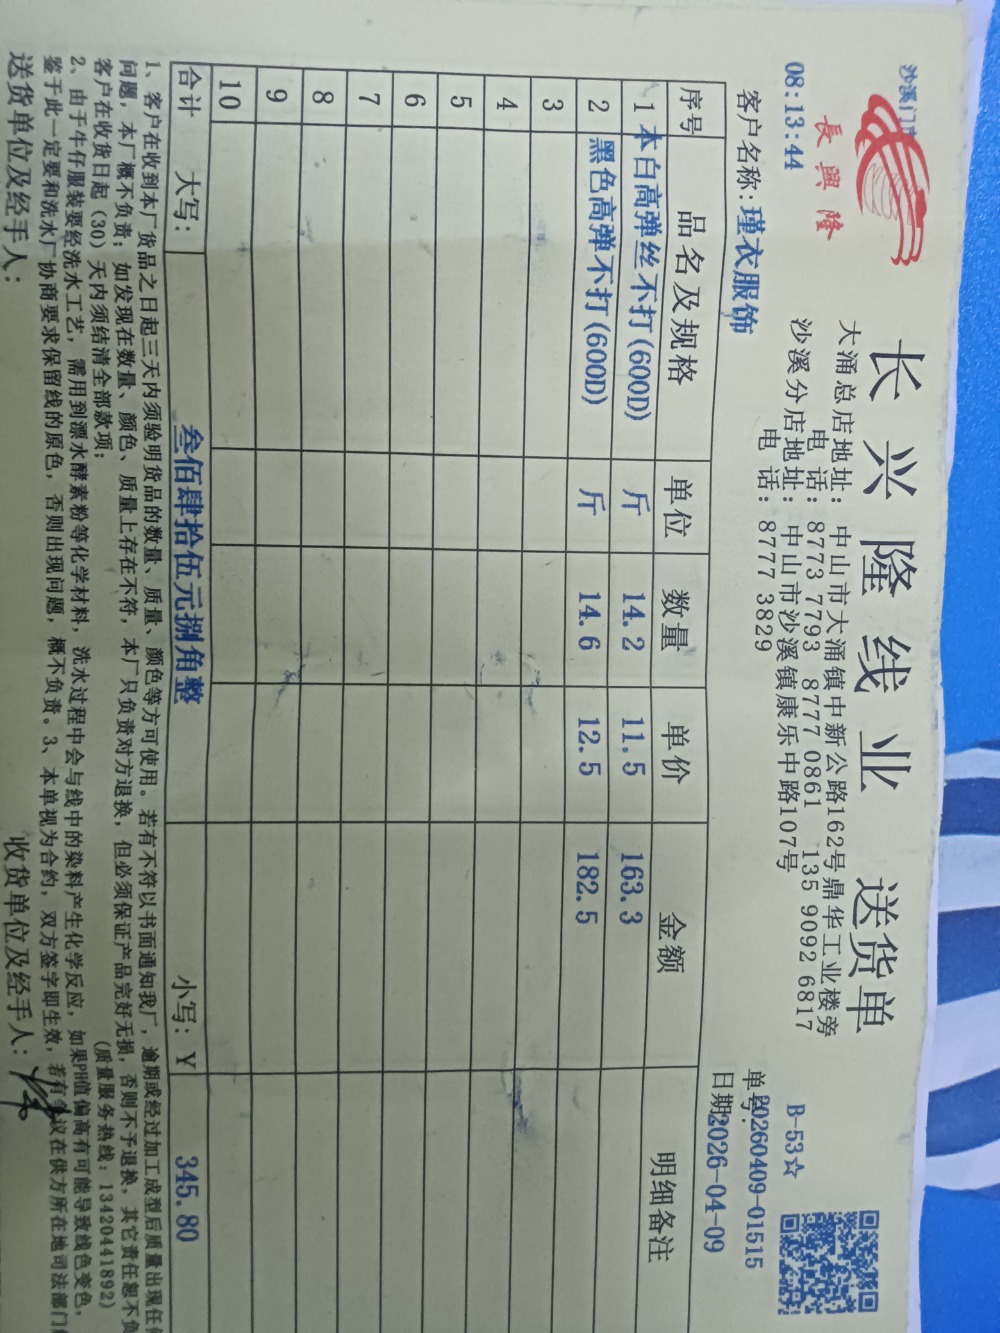 沙溪门市
08:13:44
長興隆
长兴隆线业 送货单
大涌总店地址：中山市大涌镇中新公路162号鼎华工业楼旁
电 话：8773 7793 8777 0861 135 9092 6817
沙溪分店地址：中山市沙溪镇康乐中路107号
电 话：8777 3829
B-53☆
单号：20260409-01515
客户名称：瑾衣服饰
日期：2026-04-09
序号 品名及规格 单位 数量 单价 金额 明细备注
1 本白高弹丝不打(600D) 斤 14.2 11.5 163.3
2 黑色高弹不打(600D) 斤 14.6 12.5 182.5
3
4
5
6
7
8
9
10
合计 大写：叁佰肆拾伍元捌角整 小写：￥ 345.80
1、客户在收到本厂货品之日起三天内须验明货品的数量、质量、颜色等方可使用。若有不符以书面通知我厂，逾期或经过加工成型后质量出现任何
问题，本厂概不负责；如发现在数量、颜色、质量上存在不符，本厂只负责对方退换，但必须保证产品完好无损，否则不予退换，其它责任恕不负
客户在收货日起（30）天内须结清全部款项； （质量服务热线：13420441892）
2、由于牛仔服装要经洗水工艺，需用到漂水酵素粉等化学材料，洗水过程中会与线中的染料产生化学反应，如果PH值偏高有可能导致线色变色，
鉴于此一定要和洗水厂协商要求保留线的原色，否则出现问题，概不负责。3、本单视为合约，双方签字即生效，若有争议在供方所在地司法部门
送货单位及经手人： 收货单位及经手人：